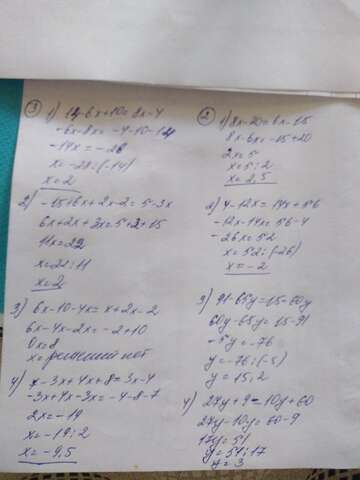 ③ 1) 14-6x+10=8x-4
-6x-8x=-4-10-14
-14x=-28
x=-28:(-14)
x=2
2) -15+6x+2x-2=5-3x
6x+2x+3x=5+2+15
11x=22
x=22:11
x=2
3) 6x-10-4x=x+2x-2
6x-4x-2x=-2+10
0x=8
x=решений нет
4) 7-3x+4x+8=3x-4
-3x+4x-3x=-4-8-7
2x=-19
x=-19:2
x=-9,5
② 1) 8x-20=6x-15
8x-6x=-15+20
2x=5
x=5:2
x=2,5
2) 4-12x=14x+56
-12x-14x=56-4
-26x=52
x=52:(-26)
x=-2
3) 91-65y=15-60y
60y-65y=15-91
-5y=-76
y=-76:(-5)
y=15,2
4) 27y+9=10y+60
27y-10y=60-9
17y=51
y=51:17
y=3